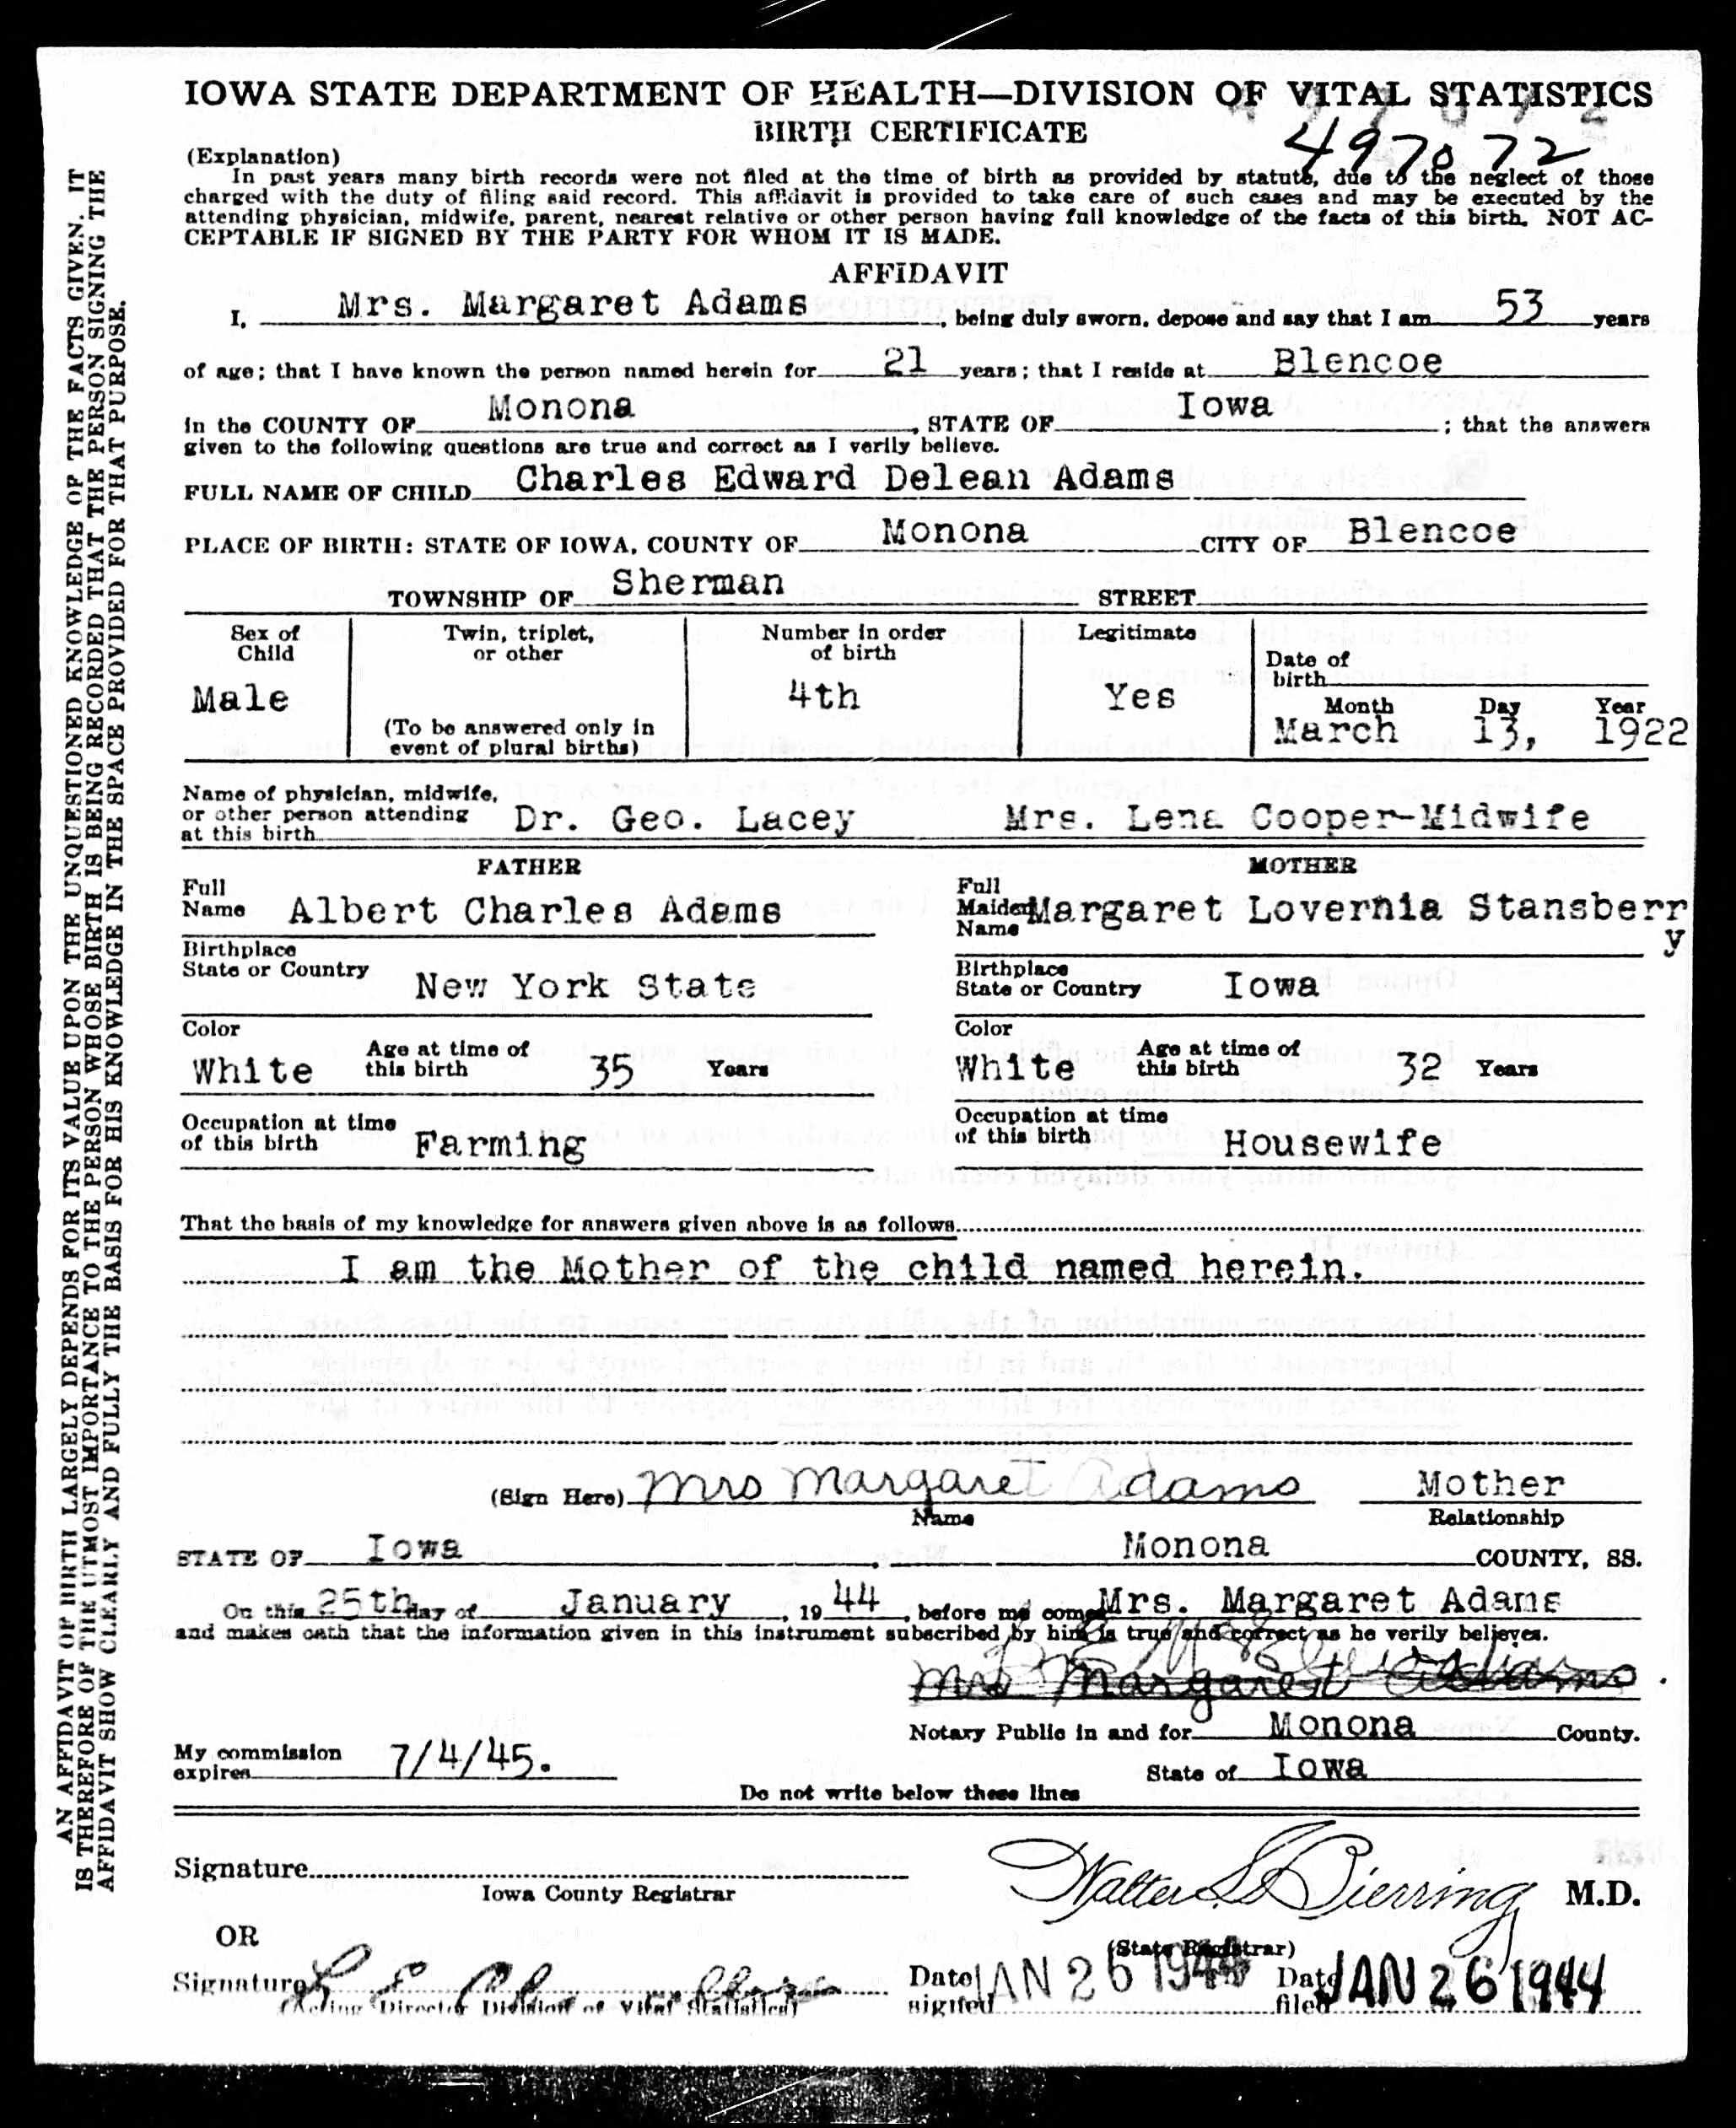 IOWA STATE DEPARTMENT OF HEALTH—DIVISION OF VITAL STATISTICS
BIRTH CERTIFICATE
497072
(Explanation)
In past years many birth records were not filed at the time of birth as provided by statute, due to the neglect of those
charged with the duty of filing said record. This affidavit is provided to take care of such cases and may be executed by the
attending physician, midwife, parent, nearest relative or other person having full knowledge of the facts of this birth. NOT AC-
CEPTABLE IF SIGNED BY THE PARTY FOR WHOM IT IS MADE.
AFFIDAVIT
I, Mrs. Margaret Adams, being duly sworn, depose and say that I am 53 years
of age; that I have known the person named herein for 21 years; that I reside at Blencoe
in the COUNTY OF Monona, STATE OF Iowa; that the answers
given to the following questions are true and correct as I verily believe.
FULL NAME OF CHILD Charles Edward Delean Adams
PLACE OF BIRTH: STATE OF IOWA, COUNTY OF Monona CITY OF Blencoe
TOWNSHIP OF Sherman STREET
Sex of Child
Male
Twin, triplet, or other
(To be answered only in event of plural births)
Number in order of birth
4th
Legitimate
Yes
Date of birth
Month Day Year
March 13, 1922
Name of physician, midwife,
or other person attending
at this birth Dr. Geo. Lacey Mrs. Lena Cooper-Midwife
FATHER
Full Name Albert Charles Adams
Birthplace
State or Country New York State
Color White Age at time of this birth 35 Years
Occupation at time of this birth Farming
MOTHER
Full Maiden Name Margaret Lovernia Stansberry
Birthplace
State or Country Iowa
Color White Age at time of this birth 32 Years
Occupation at time of this birth Housewife
That the basis of my knowledge for answers given above is as follows
I am the Mother of the child named herein.
(Sign Here) Mrs Margaret Adams Mother
Name Relationship
STATE OF Iowa, Monona COUNTY, SS.
On this 25th day of January, 19 44, before me comes Mrs. Margaret Adams
and makes oath that the information given in this instrument subscribed by him is true and correct as he verily believes.
Mrs Margaret Adams
Notary Public in and for Monona County.
My commission expires 7/4/45.
State of Iowa
Do not write below these lines
Signature
Iowa County Registrar
Walter L. Bierring M.D.
(State Registrar)
OR
Signature
(Acting Director Division of Vital Statistics)
Date signed JAN 26 1944 Date filed JAN 26 1944
AN AFFIDAVIT OF BIRTH LARGELY DEPENDS FOR ITS VALUE UPON THE UNQUESTIONED KNOWLEDGE OF THE FACTS GIVEN. IT
IS THEREFORE OF THE UTMOST IMPORTANCE TO THE PERSON WHOSE BIRTH IS BEING RECORDED THAT THE PERSON SIGNING THE
AFFIDAVIT SHOW CLEARLY AND FULLY THE BASIS FOR HIS KNOWLEDGE IN THE SPACE PROVIDED FOR THAT PURPOSE.